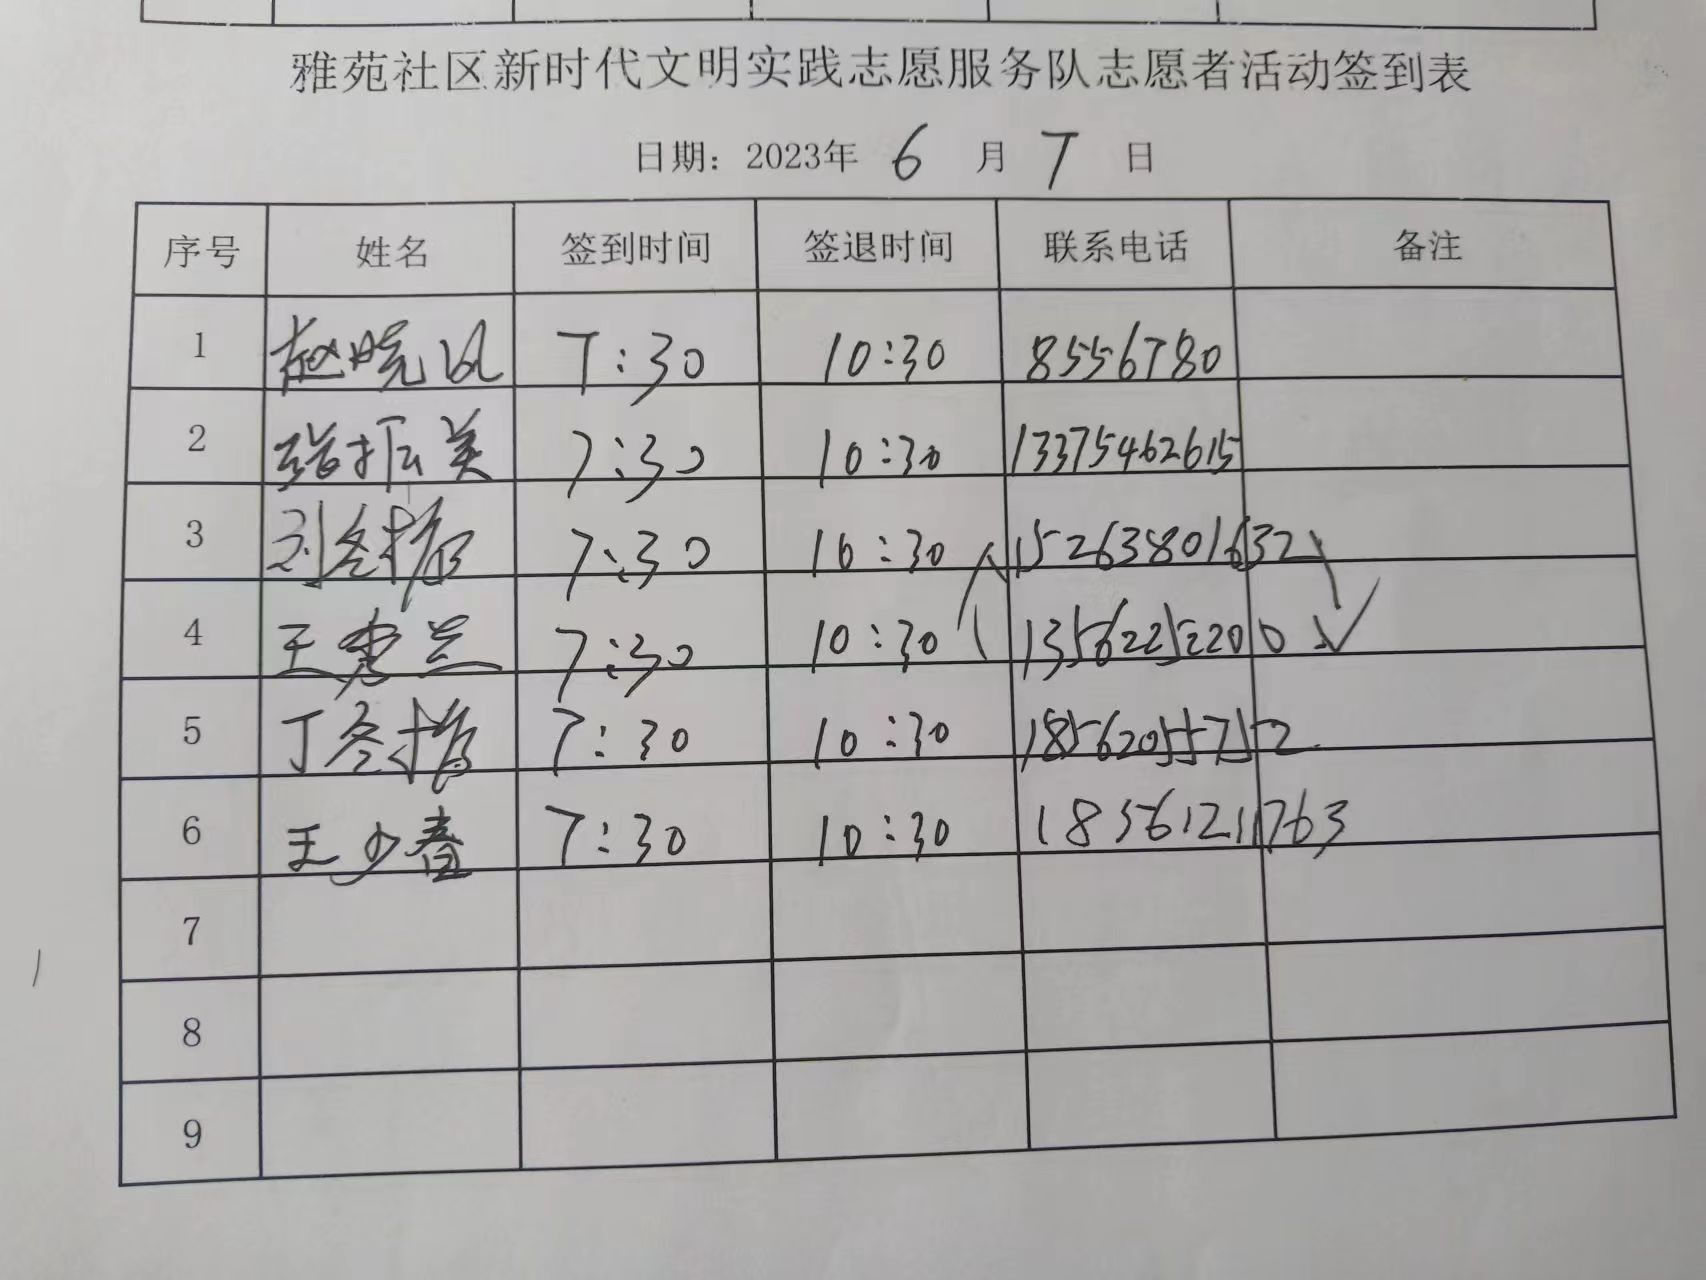 雅苑社区新时代文明实践志愿服务队志愿者活动签到表
日期：2023年 6 月 7 日
序号 姓名 签到时间 签退时间 联系电话 备注
1 赵晓 7:30 10:30 8556780
2 张振美 7:30 10:30 13375462615
3 刘冬梅 7:30 10:30 15263801632
4 王秀兰 7:30 10:30 13562252200
5 丁冬梅 7:30 10:30 18562055752
6 王少春 7:30 10:30 18561211763
7
8
9